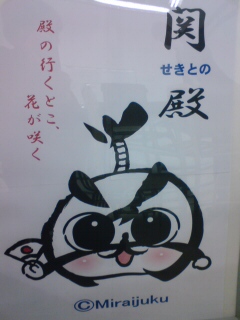 関殿
せきとの
殿の行くとこ、
花が咲く
©Miraijuku